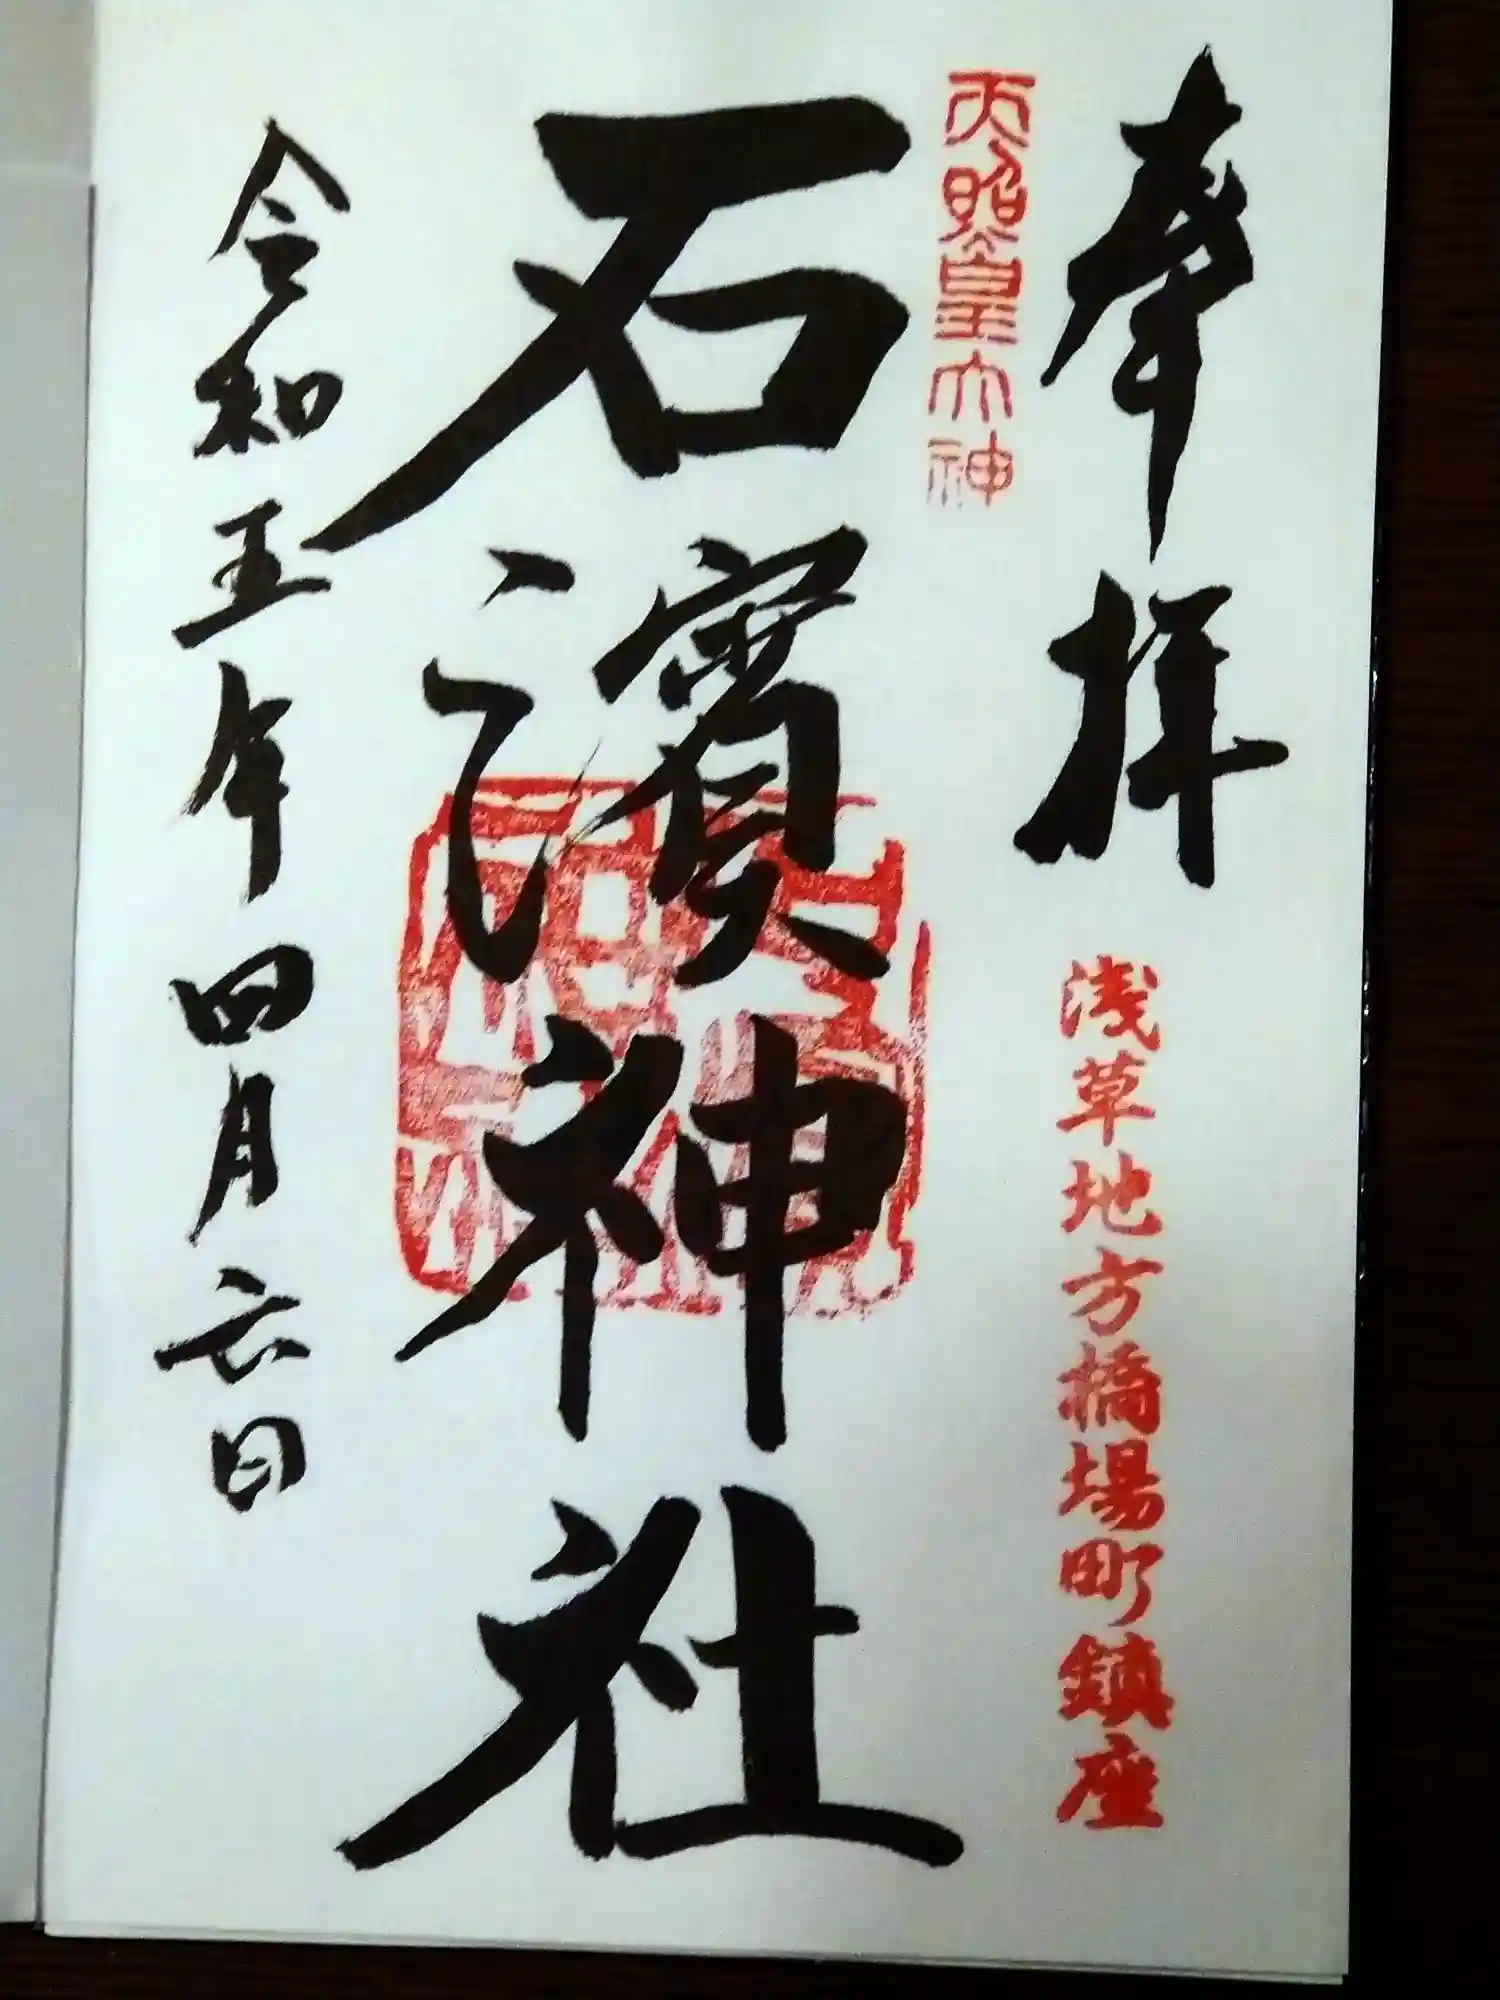 奉拝
浅草地方橋場町鎮座
天照皇大神
石濱神社
令和五年四月六日